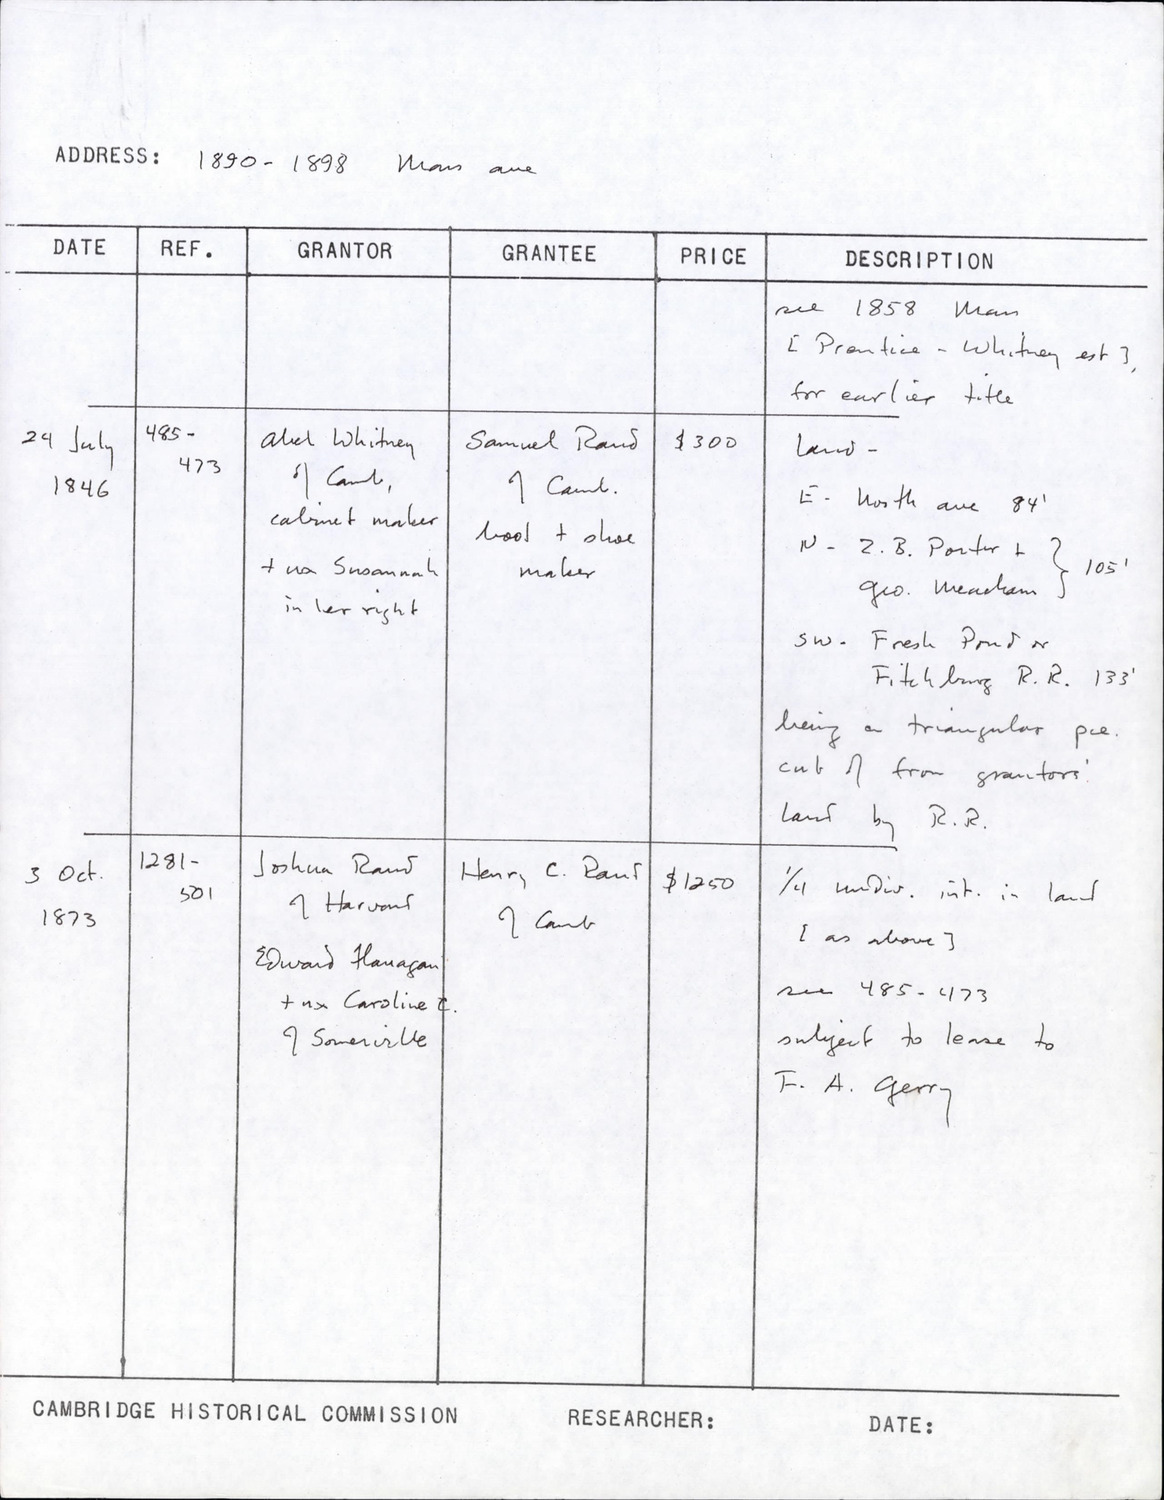 ADDRESS: 1890-1898 Mass ave
DATE REF. GRANTOR GRANTEE PRICE DESCRIPTION
see 1858 Mass
[Prentice-Whitney est],
for earlier title
24 July
1846
485-
473
Abel Whitney
of Camb,
cabinet maker
+ ux Susannah
in her right
Samuel Rand
of Camb.
boot + shoe
maker
$300
land -
E- North ave 84'
N- Z.B. Porter +
Geo. Meacham } 105'
SW- Fresh Pond or
Fitchburg R.R. 133'
being a triangular pce.
cut off from grantors'
land by R.R.
3 Oct.
1873
1281-
501
Joshua Rand
of Harvard
Edward Flanagan
+ ux Caroline C.
of Somerville
Henry C. Rand
of Camb
$1250
1/4 undiv. int. in land
[as above]
see 485-473
subject to lease to
F. A. Gerry
CAMBRIDGE HISTORICAL COMMISSION RESEARCHER: DATE: